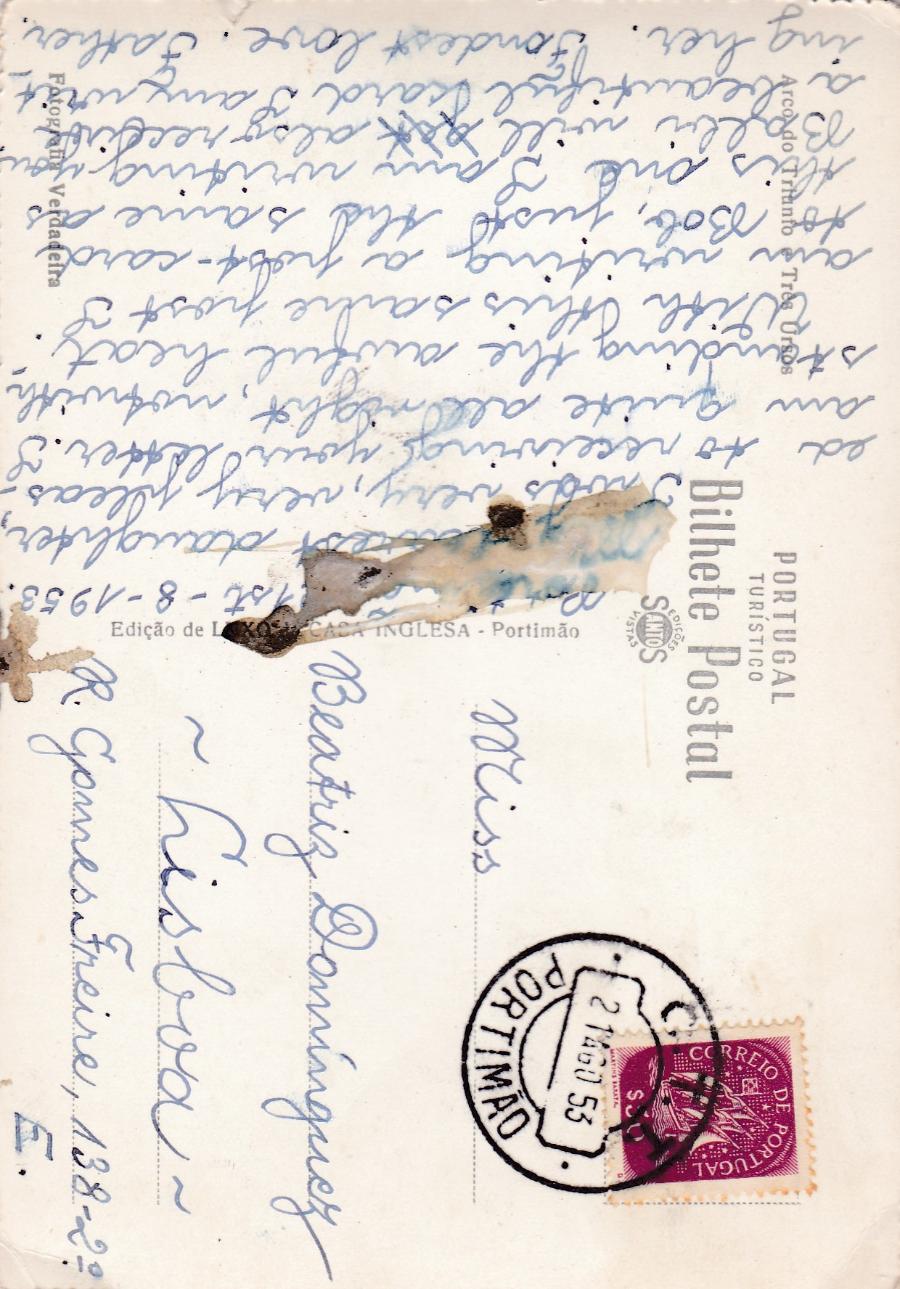 1st-8-1953.
daughter,
I was very, very pleas-
ed to receiving your letter. I
am quite all right, notwith,
standing the awful heat.
With this same post I
am writing a post-card
to Bob, just the same as
this one I am writing you.
will also receive
a beautiful card I am writ-
ing her. Fondest love. Father
Arco do Triunfo e Três Ursos
Fotografia Verdadeira
PORTUGAL
TURÍSTICO
Bilhete Postal
EDIÇÕES
SANTOS
VISTAS
Edição de CASA INGLESA - Portimão
CORREIO DE PORTUGAL
MARTINS BARATA
$50
C. T. T.
21 AGO 53
PORTIMÃO
Miss
Beatriz Domínguez
~ Lisboa ~
R. Gomes Freire, 138-2º
E.